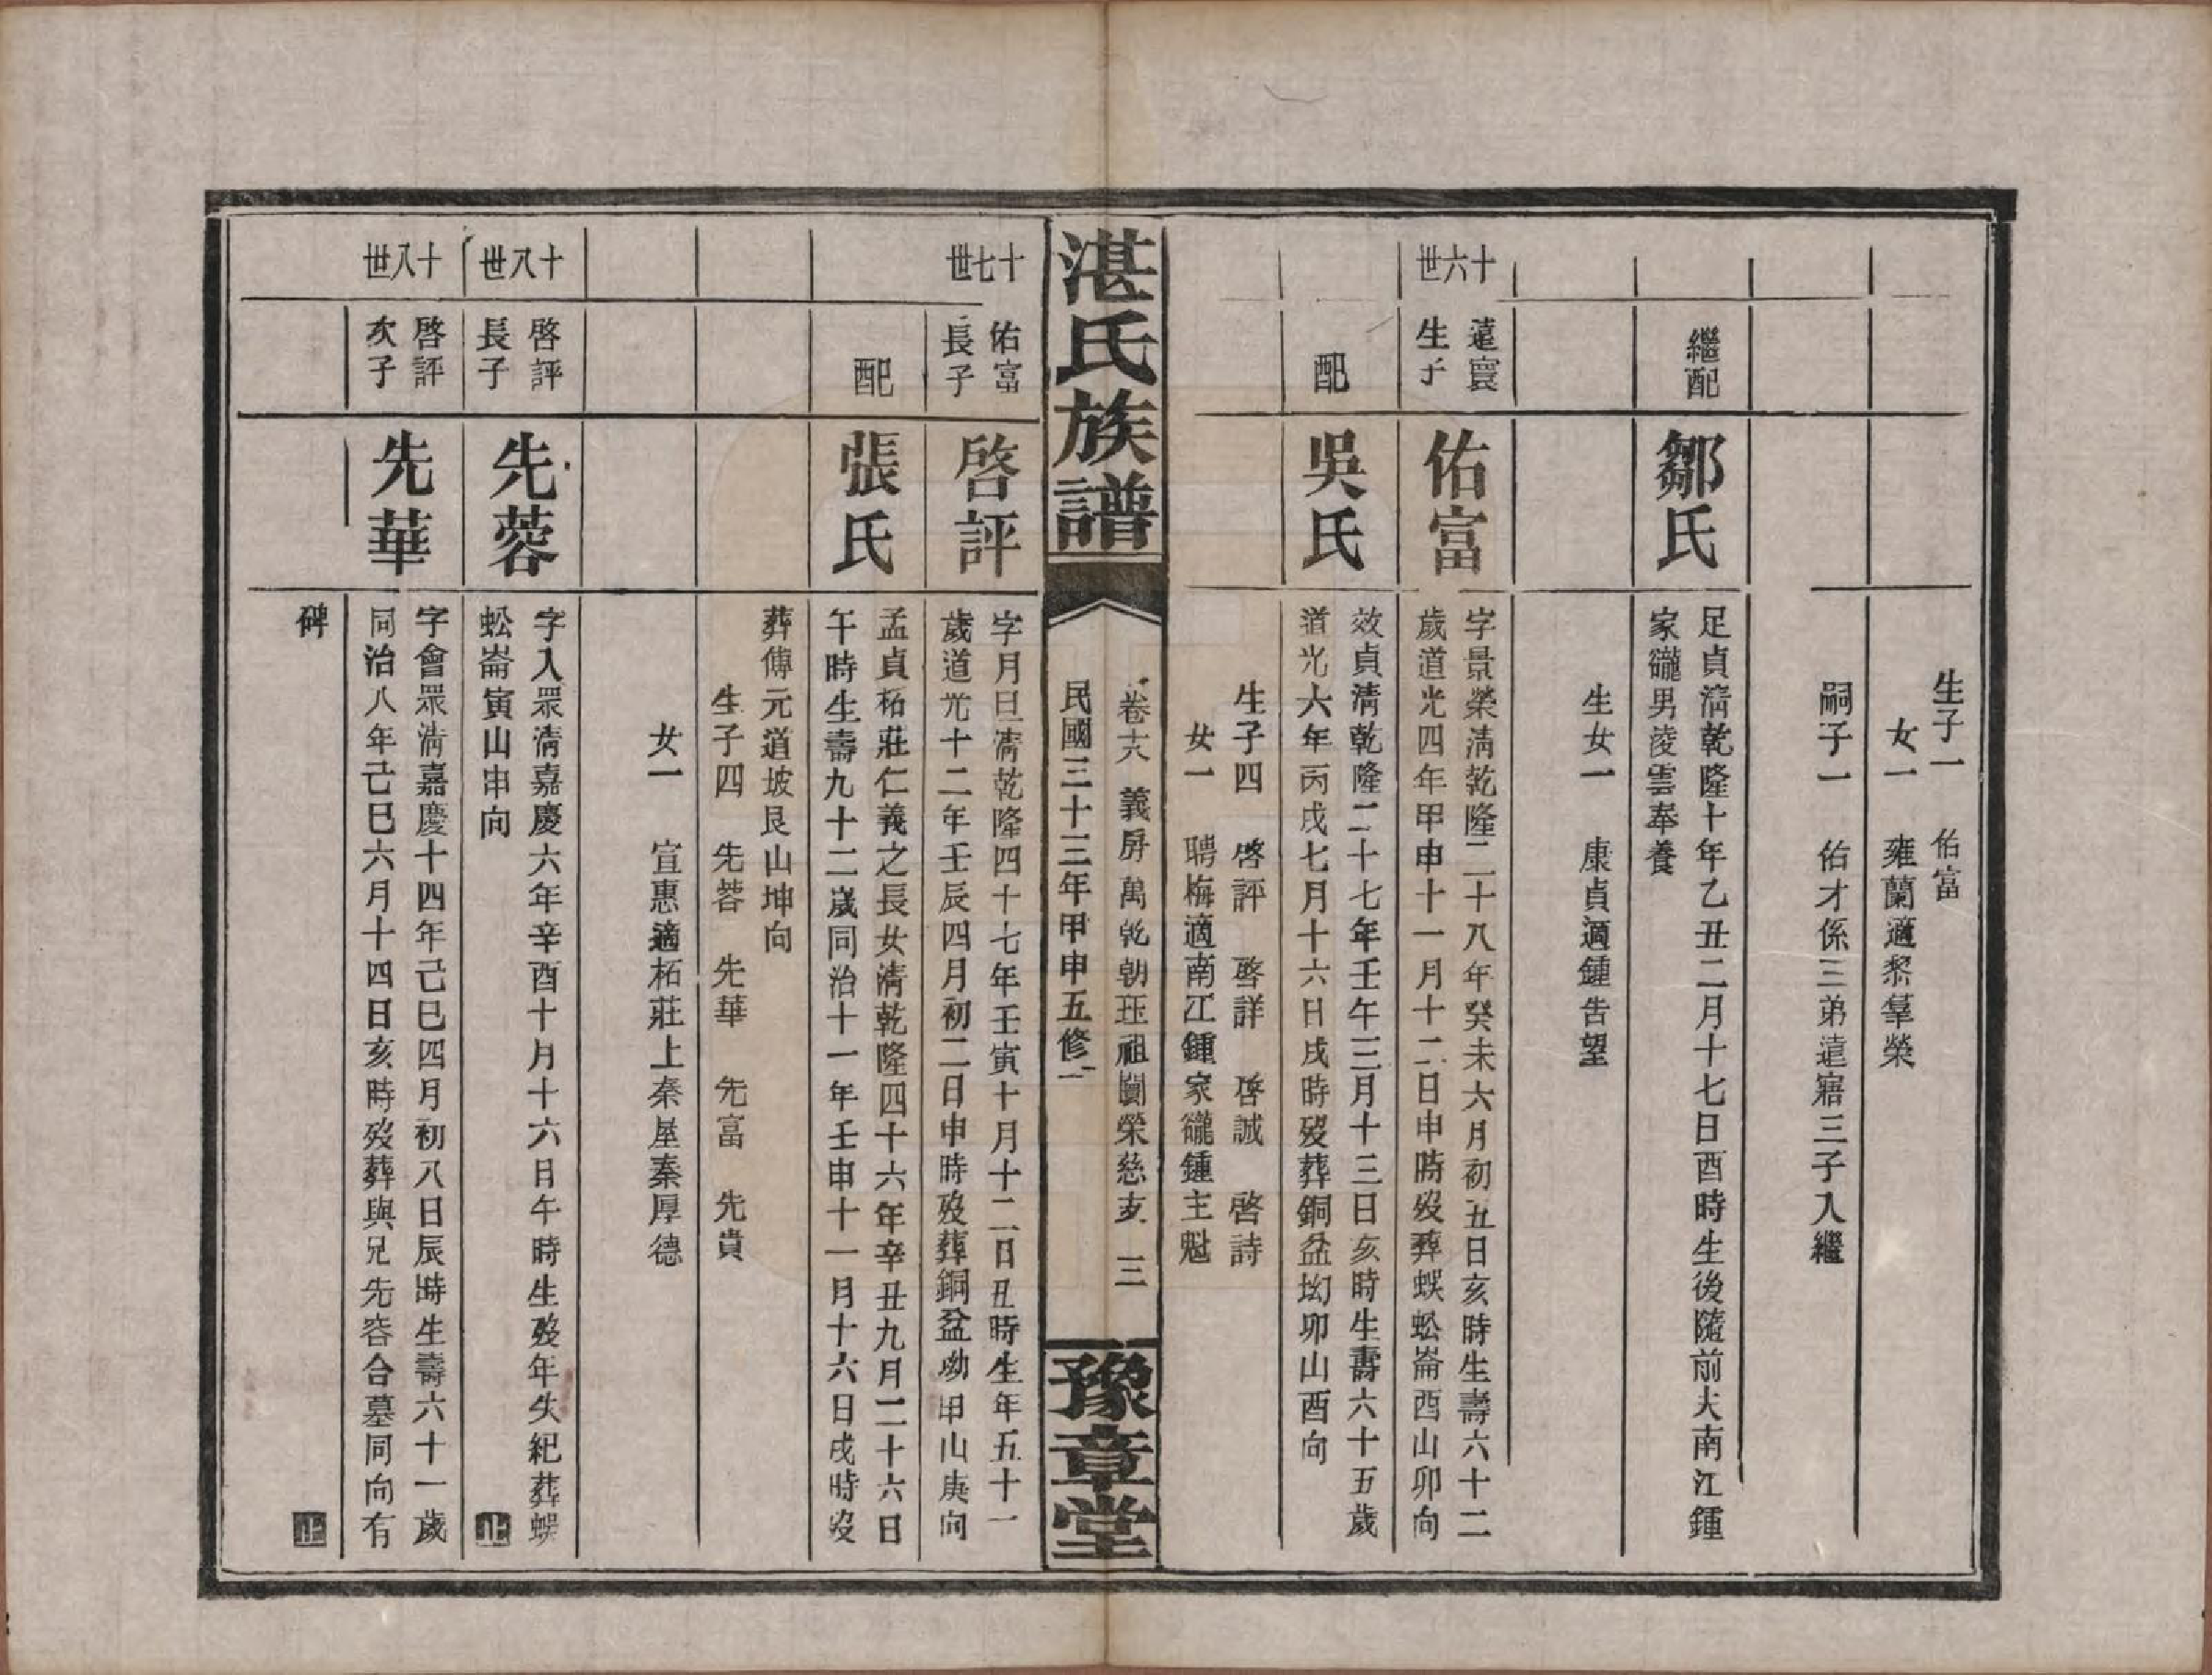 生子一　佑富
女一　雍蘭適黎羣榮
嗣子一　佑才係三弟遠寤三子入繼
繼配
鄒氏
足貞清乾隆十年乙丑二月十七日酉時生後隨前夫南江鍾
家巃男淩雲奉養
生女一　康貞適鍾告望
十六世
遠寰
生子
佑富
字景榮清乾隆二十八年癸未六月初五日亥時生壽六十二
歲道光四年甲申十一月十二日申時歿葬蜈蚣崙酉山卯向
配
吳氏
效貞清乾隆二十七年壬午三月十三日亥時生壽六十五歲
道光六年丙戌七月十六日戌時歿葬銅盆坳卯山酉向
生子四　啓評　啓詳　啓誠　啓詩
女一　聘梅適南江鍾家巃鍾主魁
湛氏族譜
卷十六　義房萬乾朝珏祖闓榮慈支　三
民國三十三年甲申五修
豫章堂
十七世
佑富
長子
啓評
字月旦清乾隆四十七年壬寅十月十二日丑時生年五十一
歲道光十二年壬辰四月初二日申時歿葬銅盆坳甲山庚向
配
張氏
孟貞柘莊仁義之長女清乾隆四十六年辛丑九月二十六日
午時生壽九十二歲同治十一年壬申十一月十六日戌時歿
葬傅元道坡艮山坤向
生子四　先蓉　先華　先富　先貴
女一　宣惠適柘莊上秦屋秦厚德
十八世
啓評
長子
先蓉
字入眾清嘉慶六年辛酉十月十六日午時生歿年失紀葬蜈
蚣崙寅山申向　止
十八世
啓評
次子
先華
字會眾清嘉慶十四年己巳四月初八日辰時生壽六十一歲
同治八年己巳六月十四日亥時歿葬與兄先容合墓同向有
碑　止